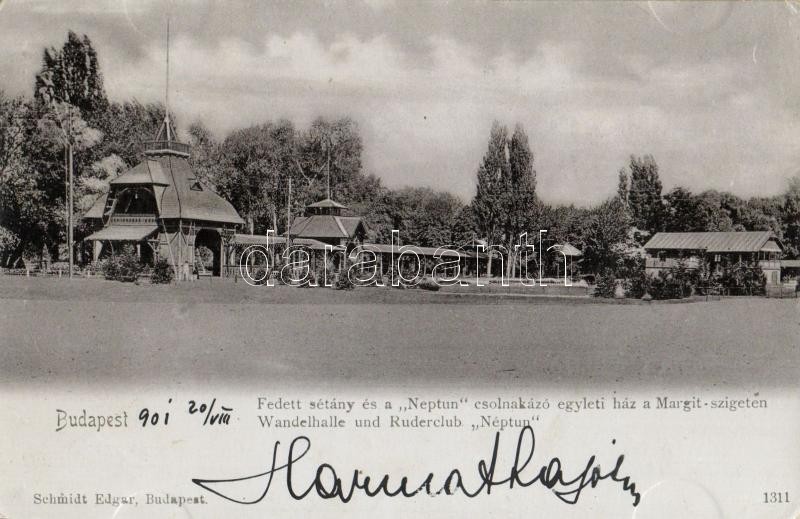 darabanth
Fedett sétány és a „Neptun“ csolnakázó egyleti ház a Margit-szigeten
Budapest 901 20/VIII Wandelhalle und Ruderclub „Néptun“
Harmat Lajos
Schmidt Edgar, Budapest. 1311